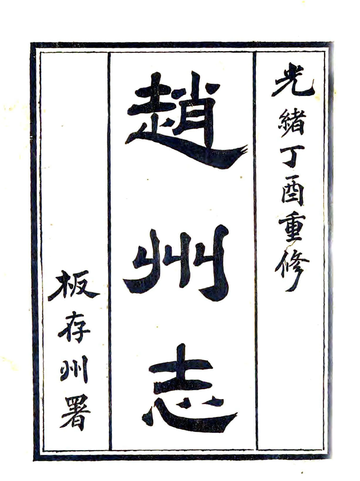 光緒丁酉重修
趙州志
板存州署